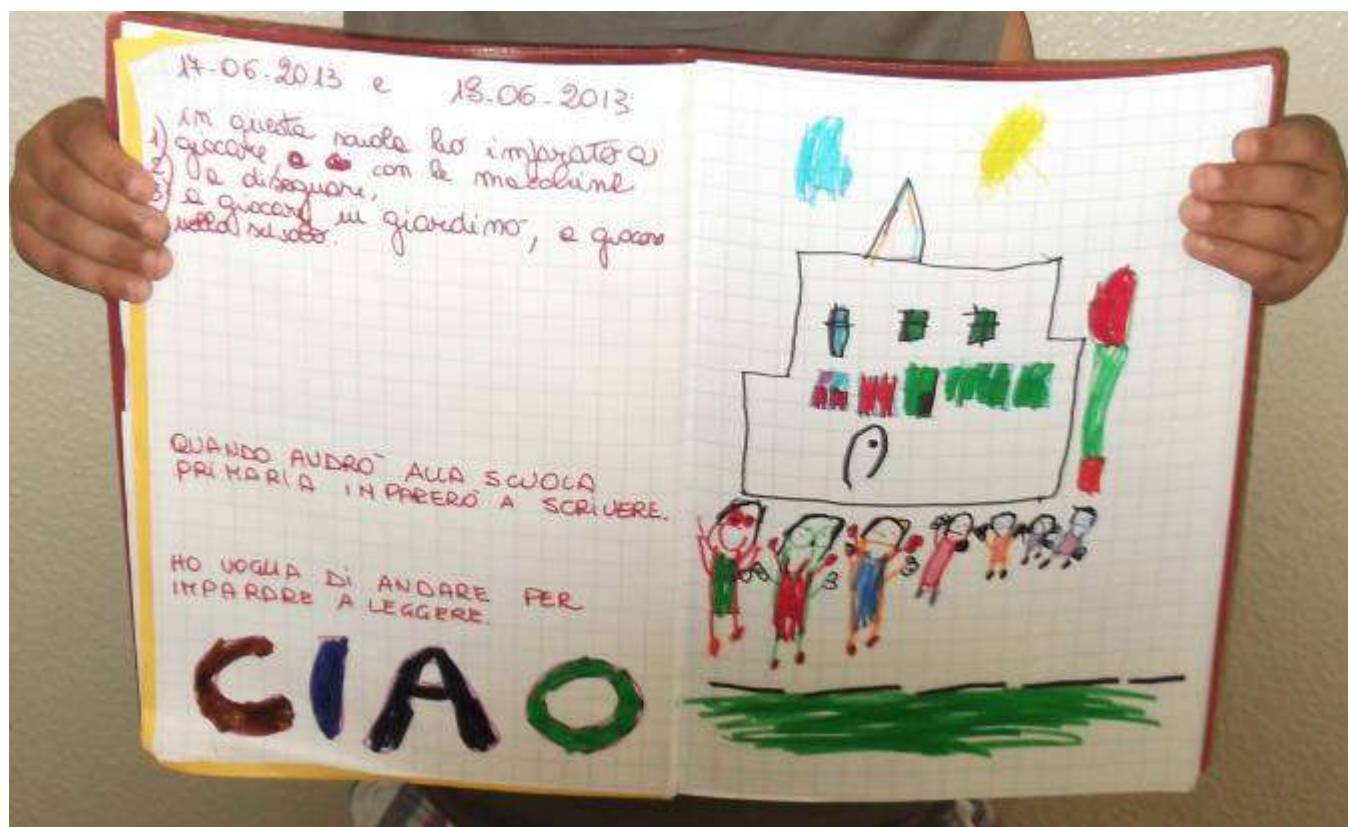 17-06-2013 e 18-06-2013
in questa scuola ho imparato a
1) giocare, con le macchine
2) a disegnare,
3) a giocare in giardino, a giocare
QUANDO ANDRÒ ALLA SCUOLA
PRIMARIA IMPARERÒ A SCRIVERE.
HO VOGLIA DI ANDARE PER
IMPARARE A LEGGERE.
CIAO